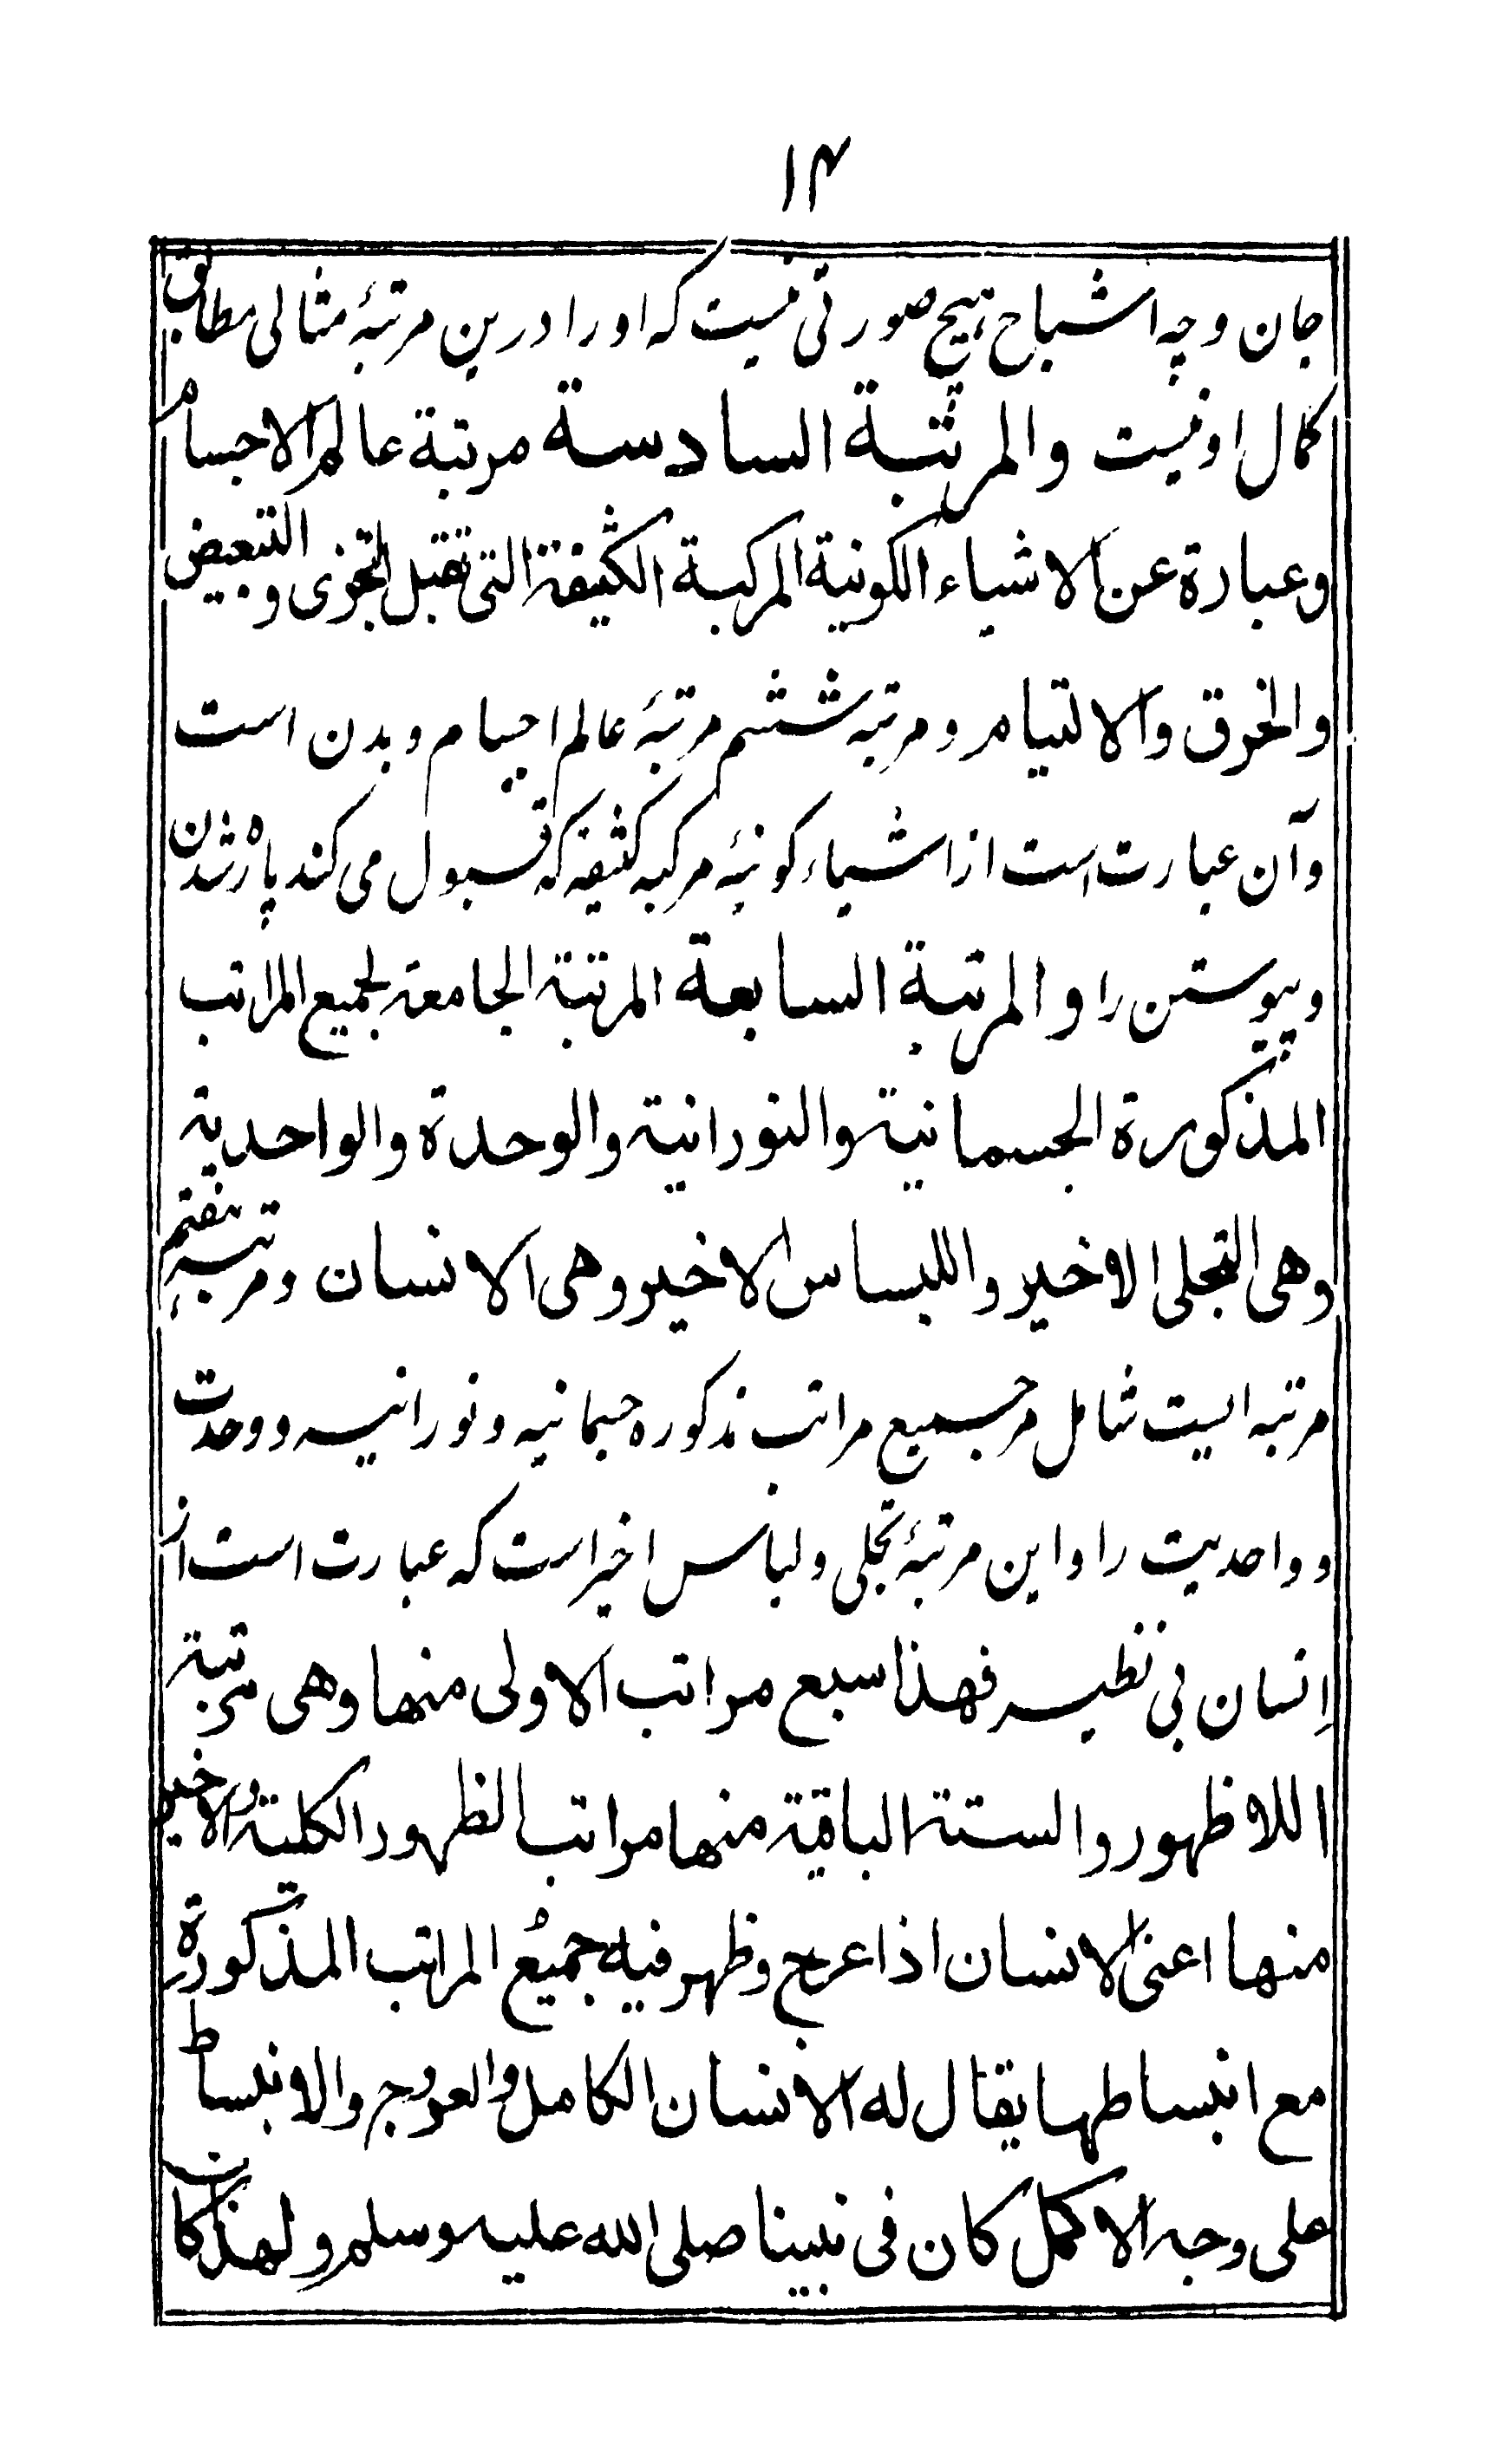 ۱۴
جان و چه اشباح ہیچ صورتی نیست که او را درین مرتبۂ مثالی مطابق
کمال او نیست والمرتبة السادسة مرتبة عالم الاجسام
وعبارة عن الاشیاء الکونیة المرکبة الکثیفة التی تقبل التجزی والتبعیض
والخرق والالتیام و مرتبه ششم مرتبۂ عالم اجسام و بدن است
و آن عبارت است از اشیاء کونیۂ مرکبه کثیفه که قبول می کند پاره شدن
و پیوستن را والمرتبة السابعة المرتبة الجامعة لجمیع المراتب
المذکورة الجسمانیة والنورانیة والوحدة والواحدیة
وهی التجلی الاخیر واللباس الاخیر وهی الانسان و مرتبۂ ہفتم
مرتبه ایست شامل مر جمیع مراتب مذکوره جسمانیه و نورانیه و وحدت
و واحدیت را و این مرتبۂ تجلی و لباس اخیر است که عبارت است از
اِنسان بی نظیر فهذا سبع مراتب الاولی منها وهی مرتبة
اللاظهور والستة الباقیة منها مراتب الظهور الکلیة والاخیر
منها اعنی الانسان اذا عرج وظهر فیه جمیعُ المراتب المذکورة
مع انبساطها یقال له الانسان الکامل والعروج والانبساط
علی وجه الاکمل کان فی نبینا صلی الله علیه وسلم ولهذا کان